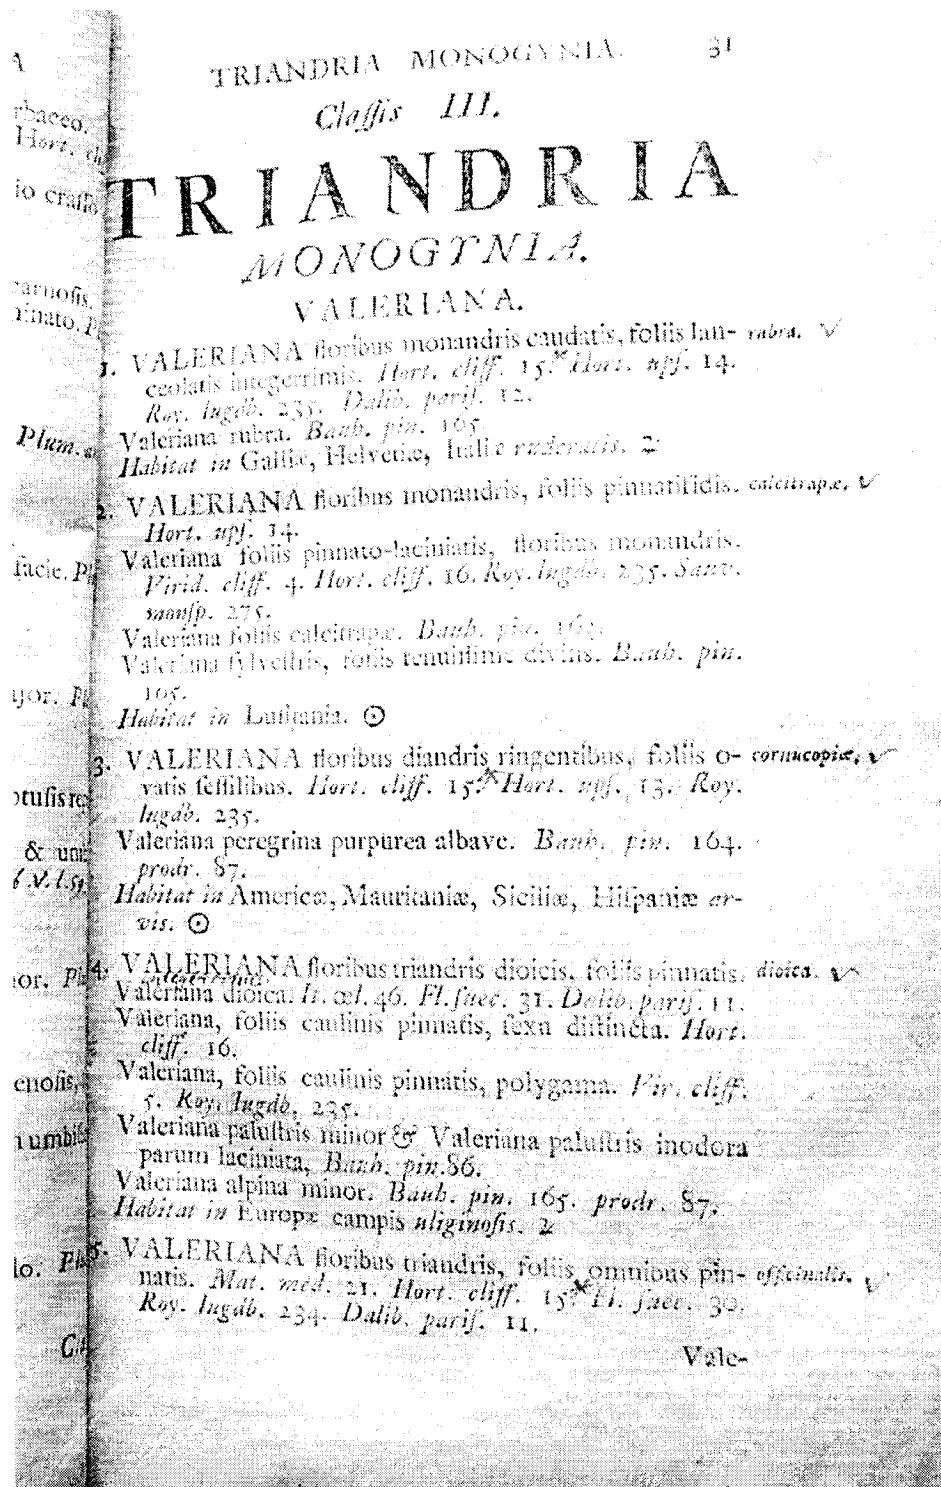 TRIANDRIA MONOGYNIA. 31
Claſſis III.
TRIANDRIA
MONOGYNIA.
VALERIANA.
1. VALERIANA floribus monandris caudatis, foliis lan- rubra.
ceolatis integerrimis. Hort. cliff. 15.* Hort. upſ. 14.
Roy. lugdb. 235. Dalib. pariſ. 12.
Valeriana rubra. Bauh. pin. 165.
Habitat in Galliæ, Helvetiæ, Italiæ ruderatis. ♃
2. VALERIANA floribus monandris, foliis pinnatifidis. calcitrapæ.
Hort. upſ. 14.
Valeriana foliis pinnato-laciniatis, floribus monandris.
Virid. cliff. 4. Hort. cliff. 16. Roy. lugdb. 235. Sauv.
monſp. 275.
Valeriana foliis calcitrapæ. Bauh. pin. 164.
Valeriana ſylveſtris, foliis tenuiſſime diviſis. Bauh. pin.
165.
Habitat in Luſitania. ☉
3. VALERIANA floribus diandris ringentibus, foliis o- cornucopiæ,
vatis ſeſſilibus. Hort. cliff. 15.* Hort. upſ. 13. Roy.
lugdb. 235.
Valeriana peregrina purpurea albave. Bauh. pin. 164.
prodr. 87.
Habitat in Americæ, Mauritaniæ, Siciliæ, Hiſpaniæ ar-
vis. ☉
4. VALERIANA floribus triandris dioicis, foliis pinnatis. dioica.
Valeriana dioica. It. œl. 46. Fl. ſuec. 31. Dalib. pariſ. 11.
Valeriana, foliis caulinis pinnatis, ſexu diſtincta. Hort.
cliff. 16.
Valeriana, foliis caulinis pinnatis, polygama. Vir. cliff.
5. Roy. lugdb. 235.
Valeriana paluſtris minor & Valeriana paluſtris inodora
parum laciniata, Bauh. pin. 86.
Valeriana alpina minor. Bauh. pin. 165. prodr. 87.
Habitat in Europæ campis uliginoſis. ♃
5. VALERIANA floribus triandris, foliis omnibus pin- officinalis.
natis. Mat. med. 21. Hort. cliff. 15.* Fl. ſuec. 30.
Roy. lugdb. 234. Dalib. pariſ. 11.
Vale-